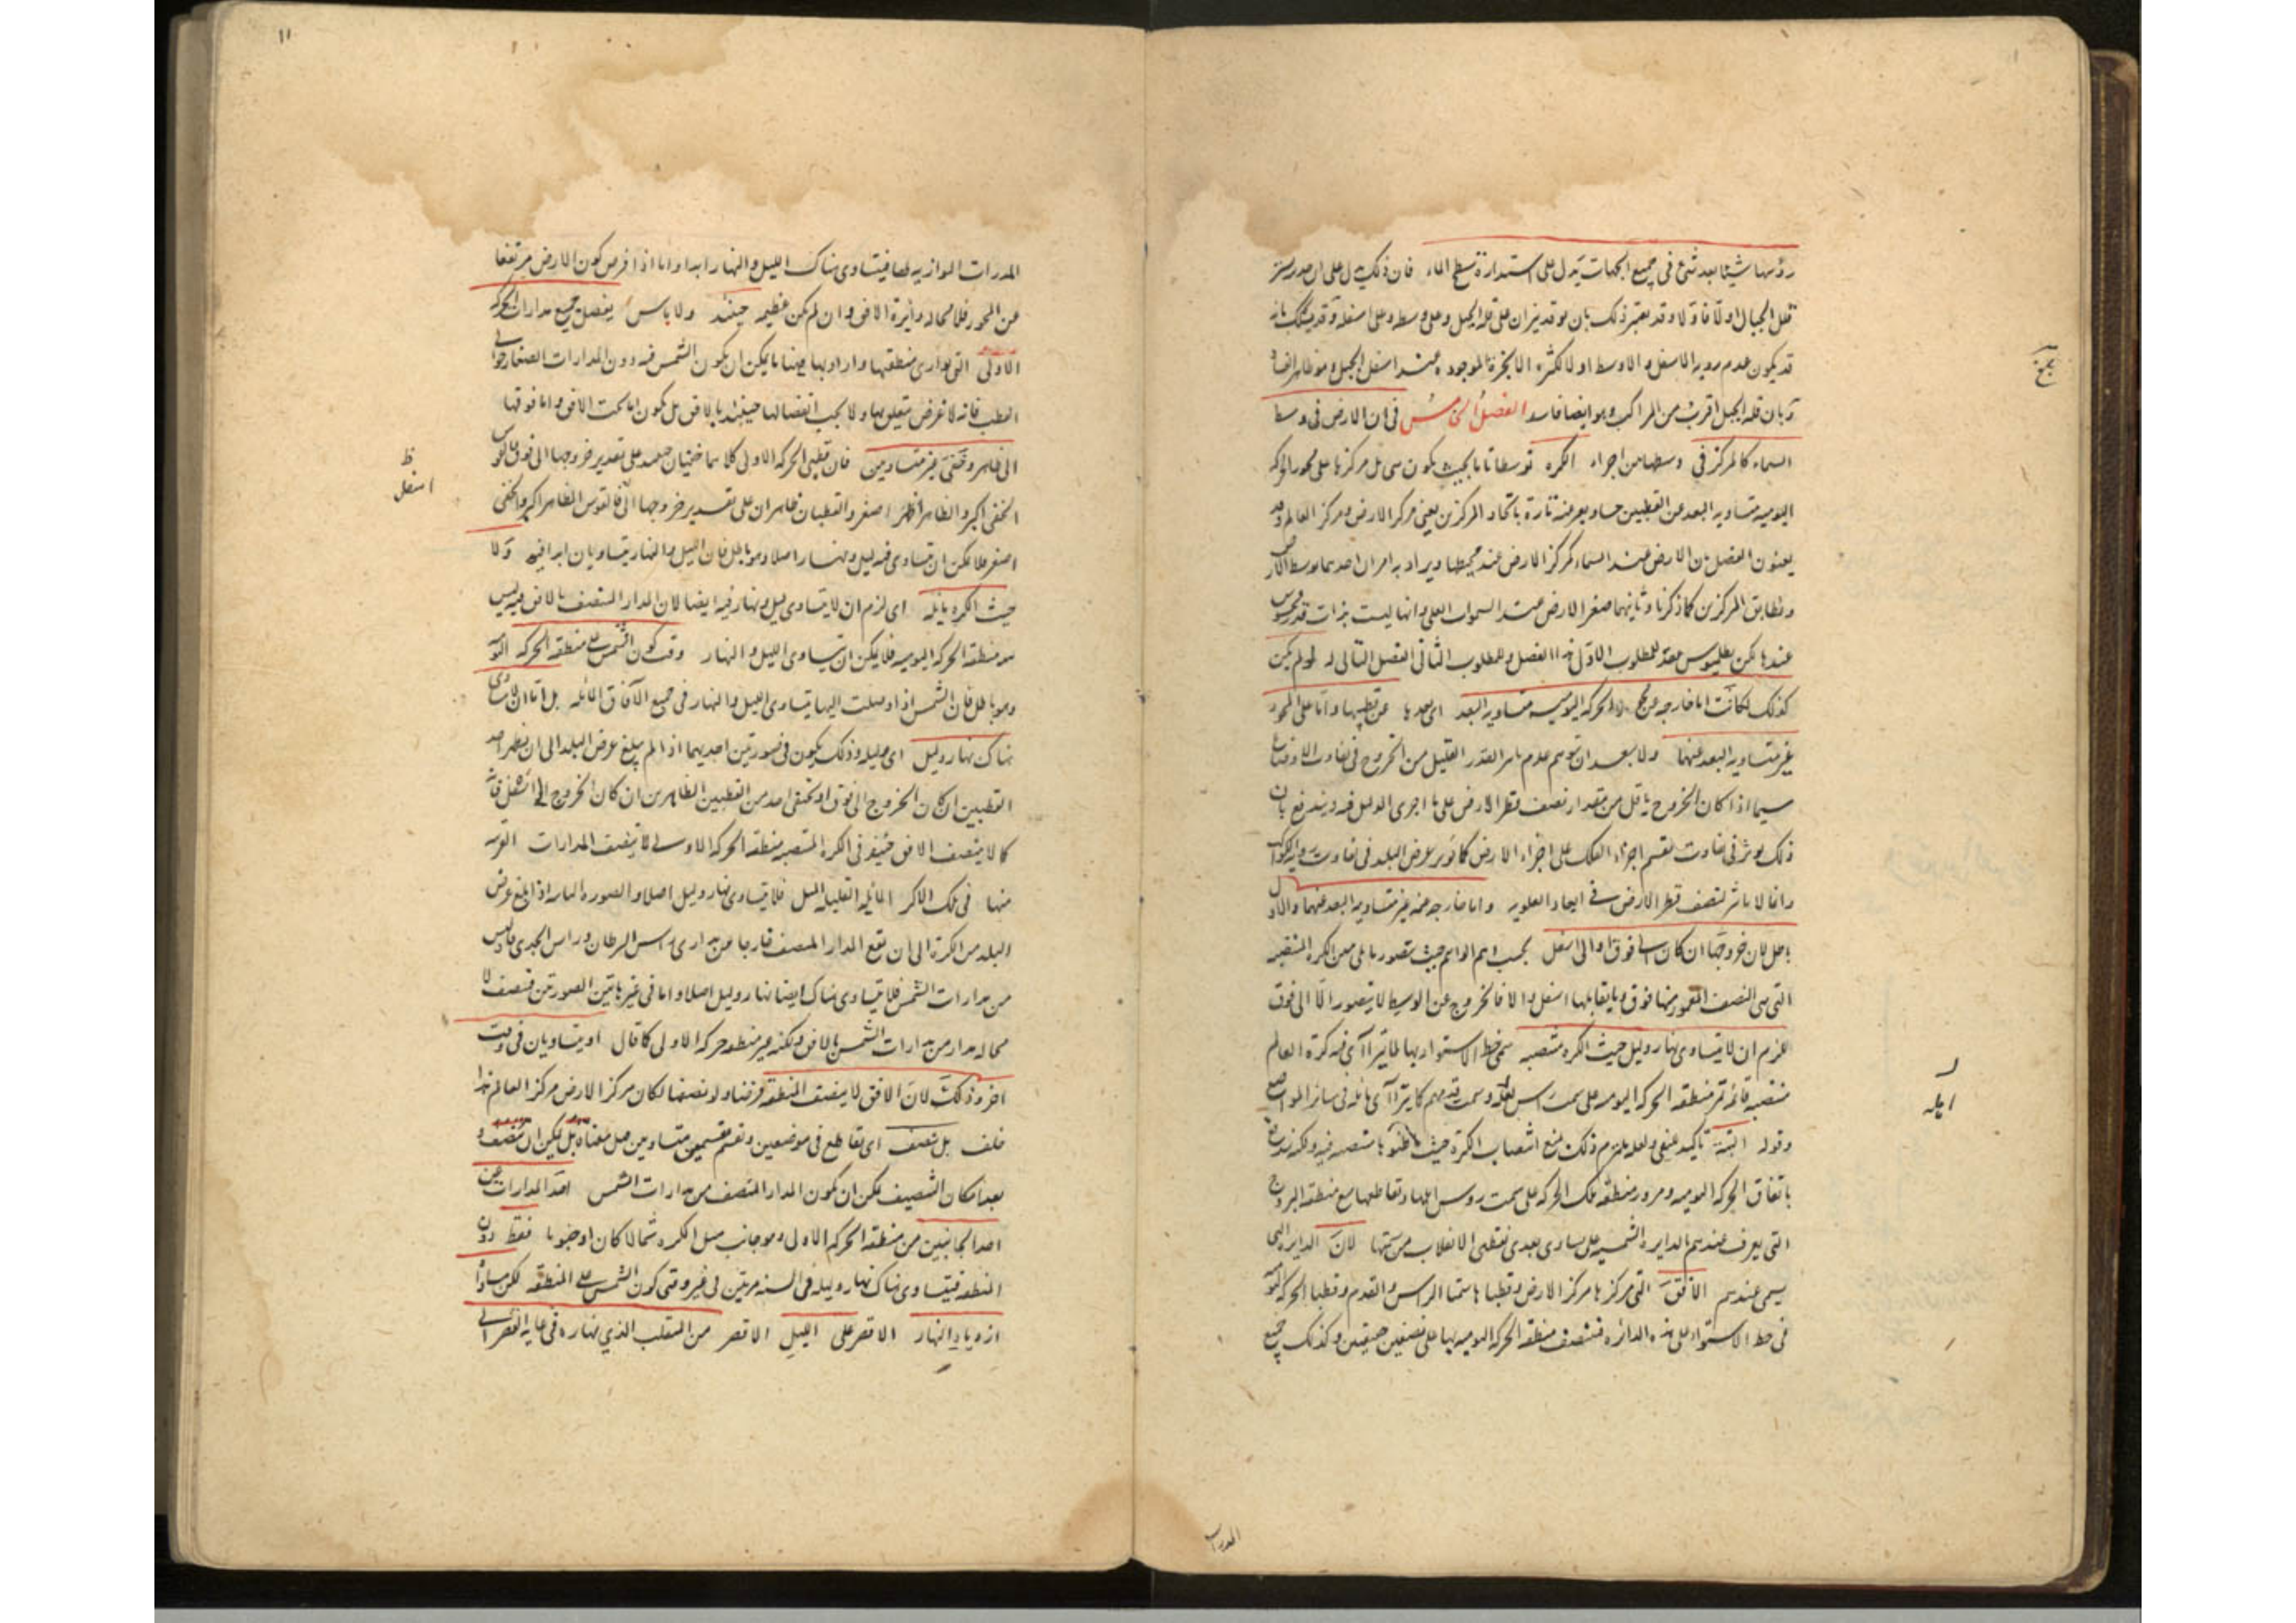 رؤسها شيئا بعد شئ في جميع الجهات يدل على استدارة سطح الماء فان ذلك يدل على ان
قلل الجبال اولا فاولا وقد يعتبر ذلك بان يوقد نيران على قلة الجبل وعلى وسطه وعلى اسفله وقد يشكك بانه
قد يكون عدم روية الاسفل والاوسط اولا لكثرة الابخرة الموجودة عند اسفل الجبل وهو ظاهر
وبان قلة الجبل اقرب من المراكب وهو ايضا فاسد الفصل الخامس في ان الارض في وسط
السماء كالمركز في وسطها من اجزاء الكرة توسطا تاما بحيث يكون مركزها على محور الحركة
اليومية متساوية البعد عن القطبين ويعبر عنه تارة باتحاد المركزين يعني مركز الارض ومركز العالم وقد
يعنون الفصل بان الارض عند السماء كمركز الارض عند محيطها ويراد به امران احدهما توسط الارض
وتطابق المركزين كما ذكرنا وثانيهما صغر الارض عند السموات العلى وانها ليست بذات قدر محسوس
عندها لكن بطلميوس عقد للمطلوب الاول هذا الفصل وللمطلوب الثاني الفصل التالي له لو لم يكن
كذلك لكانت اما خارجة عن محور الحركة اليومية متساوية البعد اي بعدها عن قطبيها واما على المحور
غير متساوية البعد عنهما ولا يبعد ان يتوهم عدم تاثير القدر القليل من الخروج في تفاوت الاوضاع
سيما اذا كان الخروج باقل من مقدار نصف قطر الارض على ما اجرى الدليل فيه ويندفع بان
ذلك يوثر في تفاوت تقسيم اجزاء الفلك على اجزاء الارض كما يوثر عرض البلد في تفاوت
وانما لا تاثير لنصف قطر الارض في ابعاد العلوية واما خارجة عنه غير متساوية البعد عنهما والاول
باطل لان خروجها ان كان الى فوق او الى اسفل بحسب وهم الواهم حيث يتصور ما يلي من الكرة المنتصبة
التي هي النصف المعمور منها فوق وما يقابلها اسفل والا فالخروج عن الوسط لا يتصور الا الى فوق
لزم ان لا يتساوى نهار وليل حيث الكرة منتصبة سمى خط الاستواء بها لما يترا آى فيه كرة العالم
منتصبة قائمة تمر منطقة الحركة اليومية على سمت راس اهله وسمت قدمهم كما يترا آى مائلة في سائر المواضع
وقوله البتة تاكيد للنفي ولعله يلزم ذلك يمنع انتصاب الكرة حيث منتصبة فيه ولكنه
باتفاق الحركة اليومية ومرور منطقة تلك الحركة على سمت رؤس اهلها وتقاطعها مع منطقة البروج
التي يعرف عندهم بالدايرة الشمسية على تساوي بعدي نقطتي الانقلاب من سمتها لان الدايرة التي
يسمى عندهم الافق التي مركزها مركز الارض وقطباها سمتا الراس والقدم وقطبا الحركة اليومية
في خط الاستواء على هذه الدائرة فتنصف منطقة الحركة اليومية بها على نصفين حقيقيين وكذلك جميع
المدارات
ايله
١١
المدارات الموازية لها فيتساوى هناك الليل والنهار ابدا واما اذا فرض كون الارض مرتفعا
عن المحور فلا محالة دائرة الافق وان لم يكن عظيمة حينئذ ولا باس يفصل جميع مدارات الحركة
الاولى التي يوازي منطقتها واراد بها ههنا ما يمكن ان يكون الشمس فيه دون المدارات الصغار حوالي
القطب فانه لا غرض متعلق بها ولا يجب انفصالها حينئذ بالافق بل يكون اما تحت الافق واما فوقها
الى ظاهر وخفي غير متساويين فان قطبي الحركة الاولى كلاهما خفيان حينئذ على تقدير خروجها الى فوق فالقوس
الخفي اكبر والظاهر اصغر والقطبان ظاهران على تقدير خروجها الى فالقوس الظاهر اكبر والخفي
اصغر فلا يمكن ان يتساوى فيه ليل ونهار اصلا وهو باطل فان الليل والنهار يتساويان ابدا فيه ولا
حيث الكرة مائلة اي لزم ان لا يتساوى ليل ونهار فيه ايضا لان المدار المنتصف بالافق فيه ليس
هو منطقة الحركة اليومية فلا يمكن ان يتساوى الليل والنهار وقت كون الشمس على منطقة الحركة اليومية
وهو باطل فان الشمس اذا وصلت اليها يتساوى الليل والنهار في جميع الآفاق المائلة بل اما ان لا يتساوى
هناك نهار وليل اي وليله وذلك يكون في صورتين احديهما اذا لم يبلغ عرض البلد الى ان يظهر احد
القطبين ان كان الخروج الى فوق او يختفى احد من القطبين الظاهرين ان كان الخروج الى اسفل فانه
كما لا ينصف الافق حينئذ في الكرة المنتصبة منطقة الحركة الاولى لا ينصف المدارات القريبة
منها في تلك الاكر المائلة القليلة الميل فلا يتساوى نهار وليل اصلا والصورة الثانية اذا بلغ عرض
البلد من الكثرة الى ان يقع المدار المنصف خارجا عن مداري راس السرطان وراس الجدي فليس
من مدارات الشمس فلا يتساوى هناك ايضا نهار وليل اصلا واما في غير هاتين الصورتين فتنصف لا
محالة مدار من مدارات الشمس بالافق ولكنه غير منطقة حركة الاولى كما قال او يتساويان في وقت
اخر وذلك لان الافق لا ينصف المنطقة فرضنا ولو نصفها لكان مركز الارض مركز العالم هذا
خلف بل ينصف اي تقاطع في موضعين وتقسم بقسمين متساويين معناه بل يمكن ان ينصف و
بعد امكان التنصيف يمكن ان يكون المدار المنتصف من مدارات الشمس احد المدارات عن
احد الجانبين من منطقة الحركة الاولى وهو جانب ميل الكرة شمالا كان او جنوبا فقط دون
المنطقة فيتساوى هناك نهار وليلة في السنة مرتين في غير وقتي كون الشمس على المنطقة لكن
ازدياد النهار الاقصر على الليل الاقصر من المنقلب الذي نهاره في غاية القصر الى
ظ
اسفل